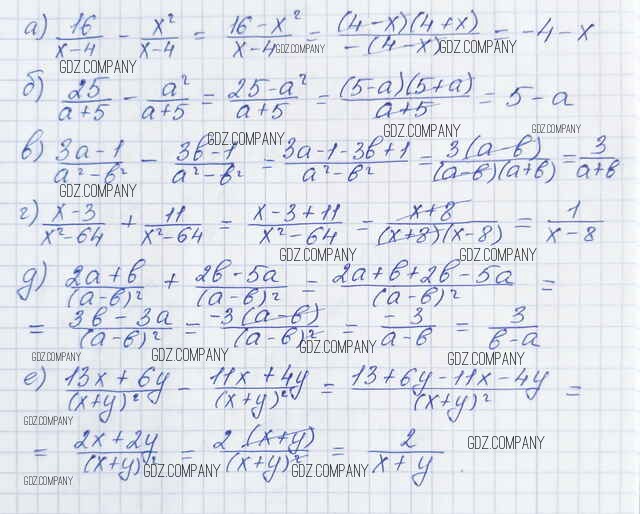 а) 16/(x-4) - x²/(x-4) = (16-x²)/(x-4) = ((4-x)(4+x))/(-(4-x)) = -4-x
GDZ.COMPANY GDZ.COMPANY GDZ.COMPANY
б) 25/(a+5) - a²/(a+5) = (25-a²)/(a+5) = ((5-a)(5+a))/(a+5) = 5-a
GDZ.COMPANY GDZ.COMPANY GDZ.COMPANY
в) (3a-1)/(a²-b²) - (3b-1)/(a²-b²) = (3a-1-3b+1)/(a²-b²) = (3(a-b))/((a-b)(a+b)) = 3/(a+b)
GDZ.COMPANY
г) (x-3)/(x²-64) + 11/(x²-64) = (x-3+11)/(x²-64) = (x+8)/((x+8)(x-8)) = 1/(x-8)
GDZ.COMPANY GDZ.COMPANY
д) (2a+b)/(a-b)² + (2b-5a)/(a-b)² = (2a+b+2b-5a)/(a-b)² =
= (3b-3a)/(a-b)² = (-3(a-b))/(a-b)² = -3/(a-b) = 3/(b-a)
GDZ.COMPANY GDZ.COMPANY GDZ.COMPANY GDZ.COMPANY
е) (13x+6y)/(x+y)² - (11x+4y)/(x+y)² = (13+6y-11x-4y)/(x+y)² =
GDZ.COMPANY
= (2x+2y)/(x+y)² = (2(x+y))/(x+y)² = 2/(x+y)
GDZ.COMPANY GDZ.COMPANY GDZ.COMPANY GDZ.COMPANY